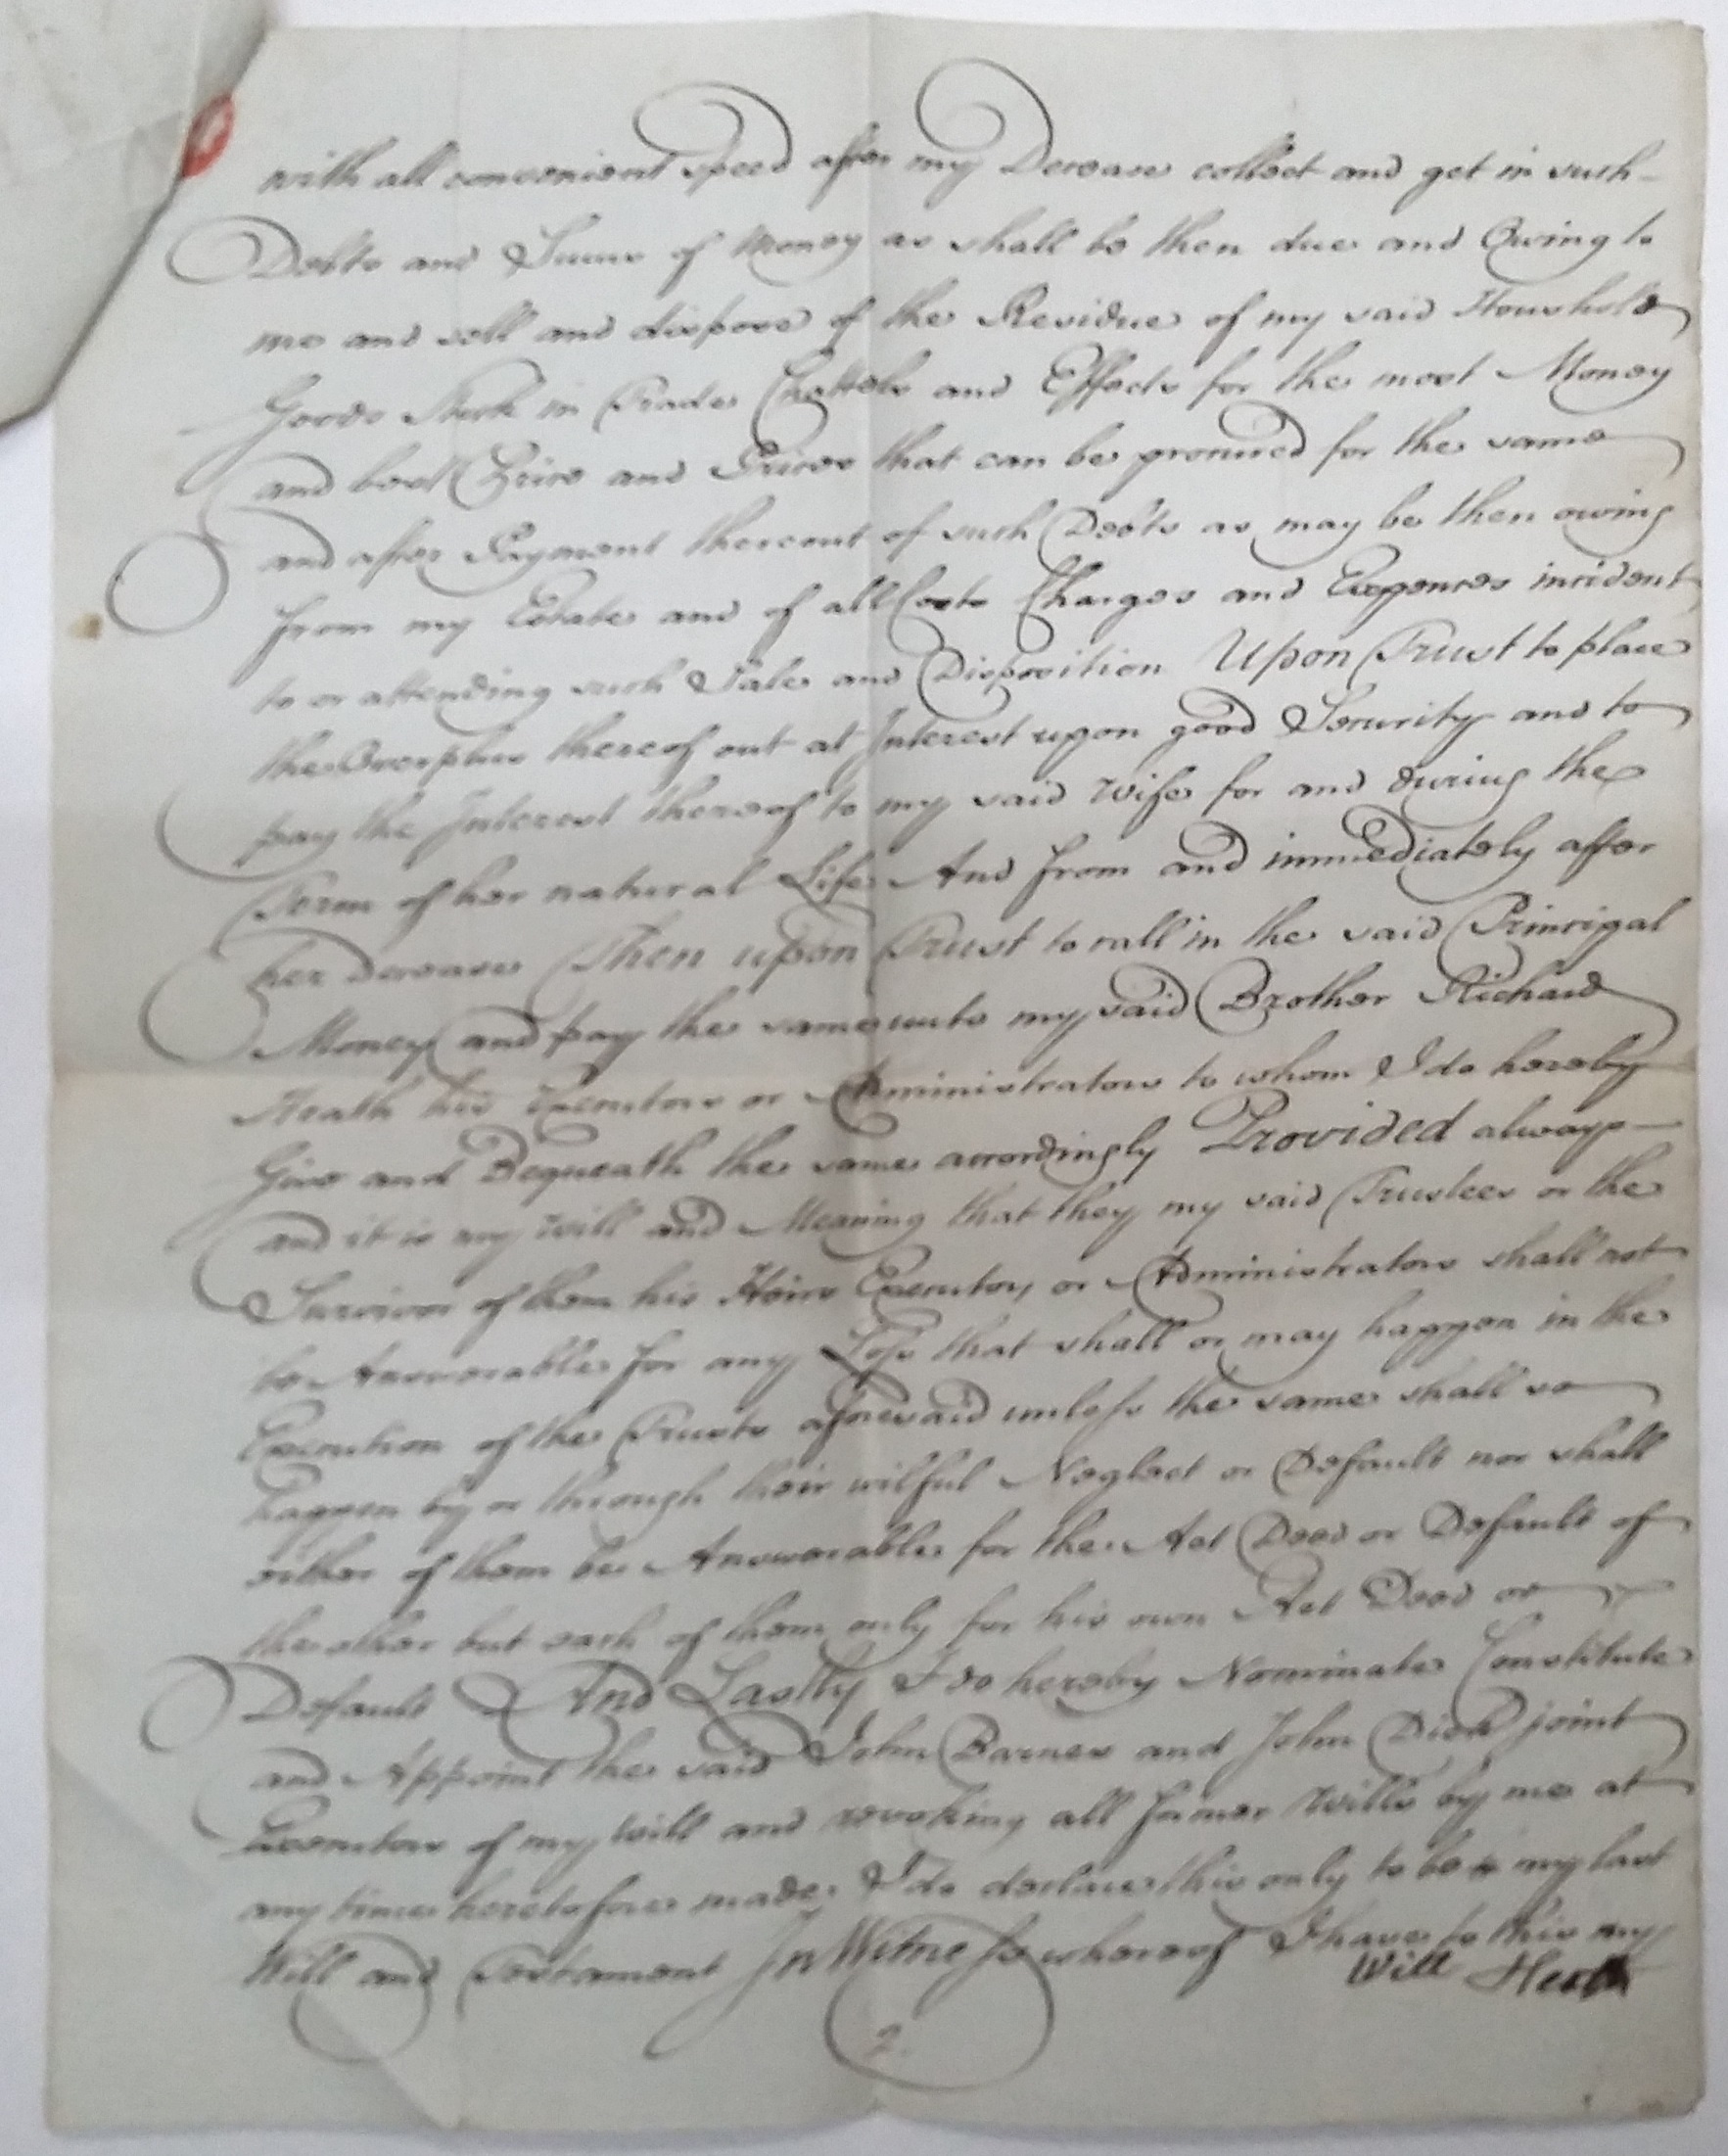 with all convenient speed after my Decease collect and get in such
Debts and Sums of Money as shall be then due and Owing to
me and sell and dispose of the Residue of my said Houshold
Goods Stock in Trade Chattels and Effects for the most Money
and best Price and Prices that can be procured for the same
and after Payment thereout of such Debts as may be then owing
from my Estate and of all Costs Charges and Expences incident
to or attending such Sale and Disposition Upon Trust to place
the Overplus thereof out at Interest upon good Security and to
pay the Interest thereof to my said Wife for and during the
Term of her natural Life And from and immediately after
her Decease Then upon Trust to call in the said Principal
Money and pay the same unto my said Brother Richard
Heath his Executors or Administrators to whom I do hereby
Give and Bequeath the same accordingly Provided always
and it is my Will and Meaning that they my said Trustees or the
Survivor of them his Heirs Executors or Administrators shall not
be Answerable for any Loss that shall or may happen in the
Execution of the Trusts aforesaid unless the same shall so
happen by or through their wilful Neglect or Default nor shall
either of them be Answerable for the Act Deed or Default of
the other but each of them only for his own Act Deed or
Default And Lastly I do hereby Nominate Constitute
and Appoint the said John Barnes and John Dick joint
Executors of my Will and revoking all former Wills by me at
any time heretofore made I do declare this only to be my last
Will and Testament In Witness whereof I have to this my
Will Heath
2.